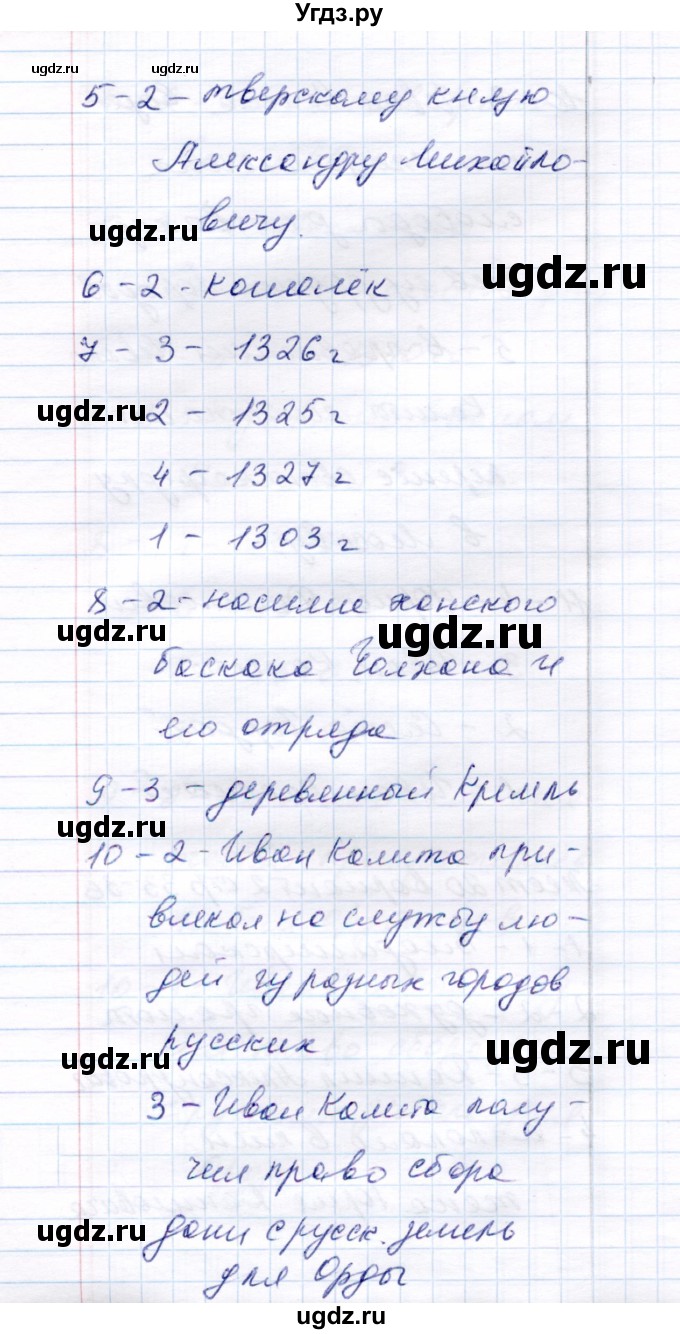 Угдз.ру
ugdz.ru ugdz.ru ugdz.ru
5-2 - тверскому князю
Александру Михайло-
вичу.
ugdz.ru
ugdz.ru
6-2 - кошелёк
7 - 3 - 1326 г
ugdz.ru
2 - 1325 г
4 - 1327 г
1 - 1303 г
8-2 - насилие ханского
ugdz.ru
ugdz.ru
баскака Чолхана и
его отряда
9-3 - деревянный Кремль
ugdz.ru
10-2 - Иван Калита при-
влекал на службу лю-
дей из разных городов
ugdz.ru
русских
ugdz.ru
3 - Иван Калита полу-
чил право сбора
ugdz.ru
дани с русск. земель
для Орды
ugdz.ru